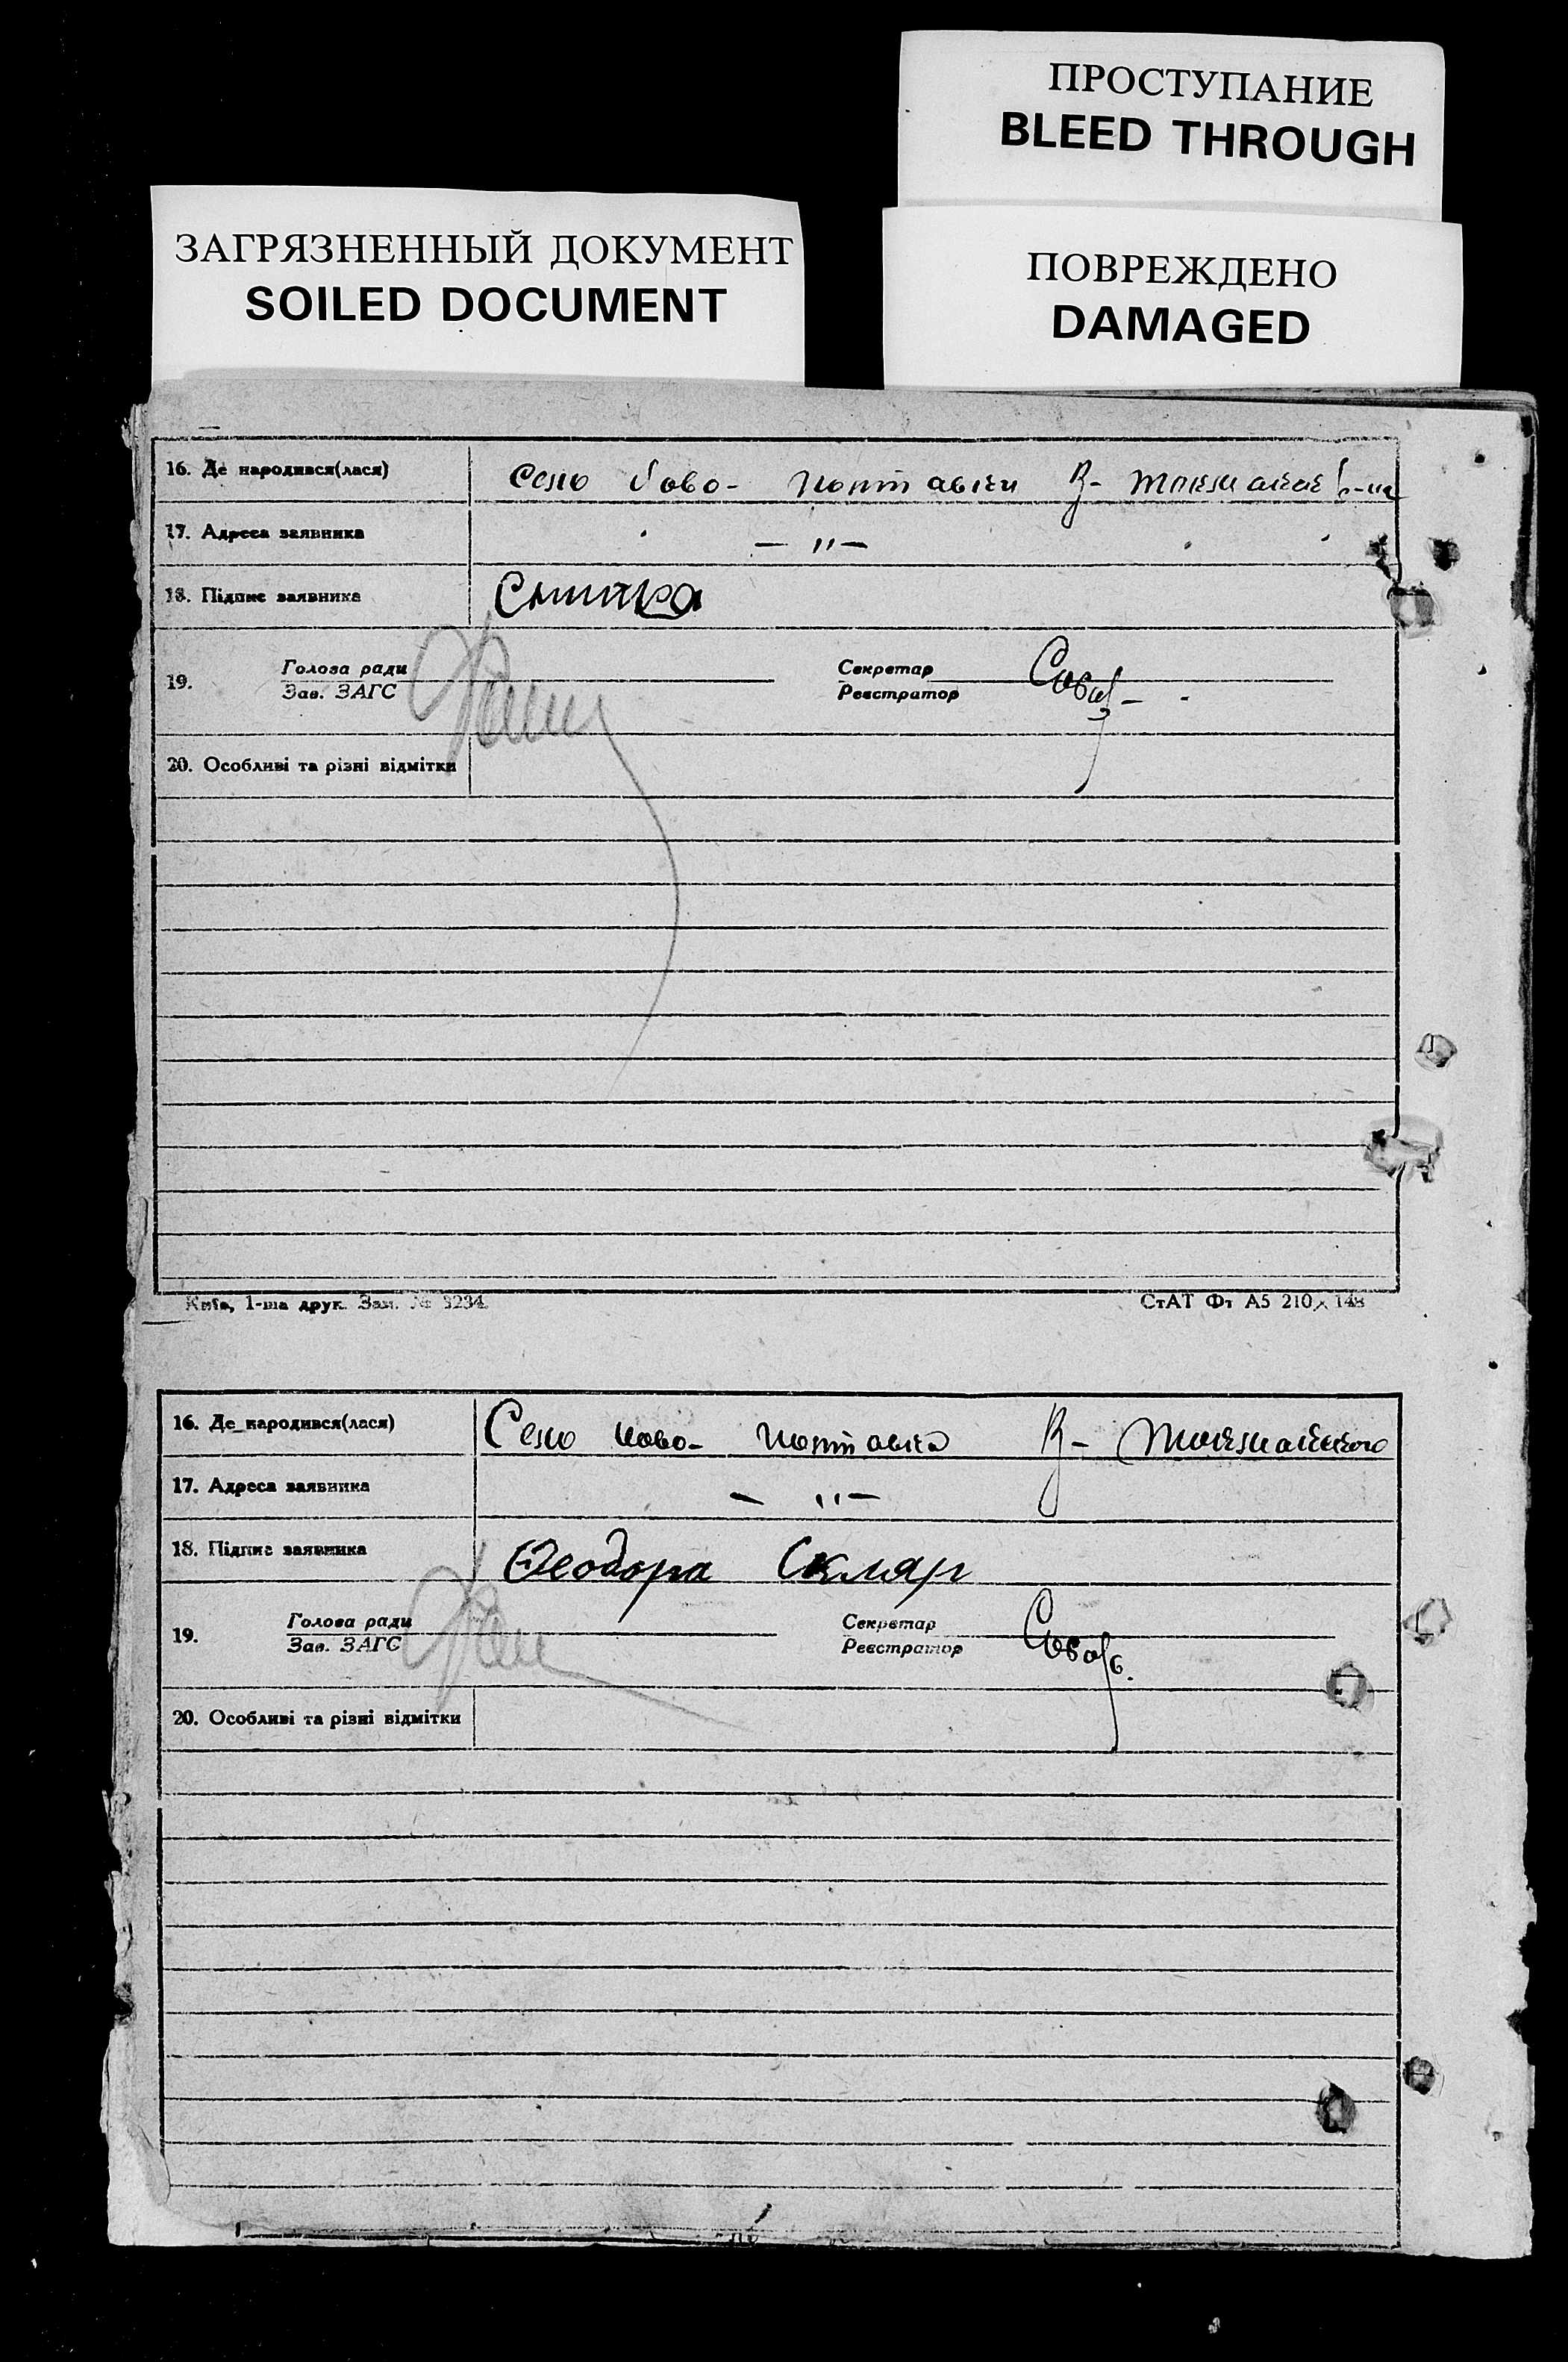 ПРОСТУПАНИЕ
BLEED THROUGH
ЗАГРЯЗНЕННЫЙ ДОКУМЕНТ
SOILED DOCUMENT
ПОВРЕЖДЕНО
DAMAGED
16. Де народився(лася) Село Ново- Полтавки В- Токмакск р-на
17. Адреса заявника — " —
18. Підпис заявника
19. Голова ради Секретар
Зав. ЗАГС Реєстратор
20. Особливі та різні відмітки
Київ, 1-ша друк. Зам. № 3234. СтАТ Фт А5 210×148
16. Де народився(лася) Село Ново- Полтавка В- Токмакського
17. Адреса заявника — " —
18. Підпис заявника Феодора Скляр
19. Голова ради Секретар
Зав. ЗАГС Реєстратор
20. Особливі та різні відмітки